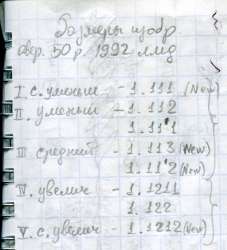 Размеры изобр
авер. 50 р 1992 ллд
I с. уменьш - 1.111 (New)
II. уменьш - 1.112
1.11'1
III средний - 1.113 (New)
1.11'2 (New)
IV. увелич - 1.1211
1.122
V. с. увелич - 1.1212 (New)